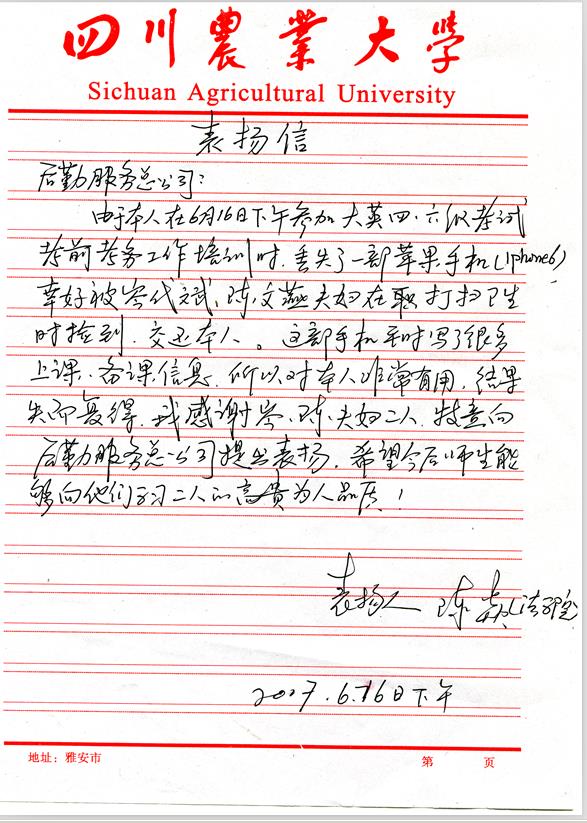 四川農業大學
Sichuan Agricultural University
表扬信
后勤服务总公司：
由于本人在6月16日下午参加大英四、六级考试
考前考务工作培训时，丢失了一部苹果手机（iphone6）
幸好被岑代文武、陈文燕夫妇在职打扫卫生
时捡到，交还本人。这部手机平时写了很多
上课、备课信息，所以对本人非常有用，结果
失而复得，我感谢岑、陈夫妇二人，特意向
后勤服务总公司提出表扬，希望今后师生能
够向他们学习二人的高贵为人品质！
表扬人 陈 （法学院
2017.6.16日下午
地址：雅安市
第 页